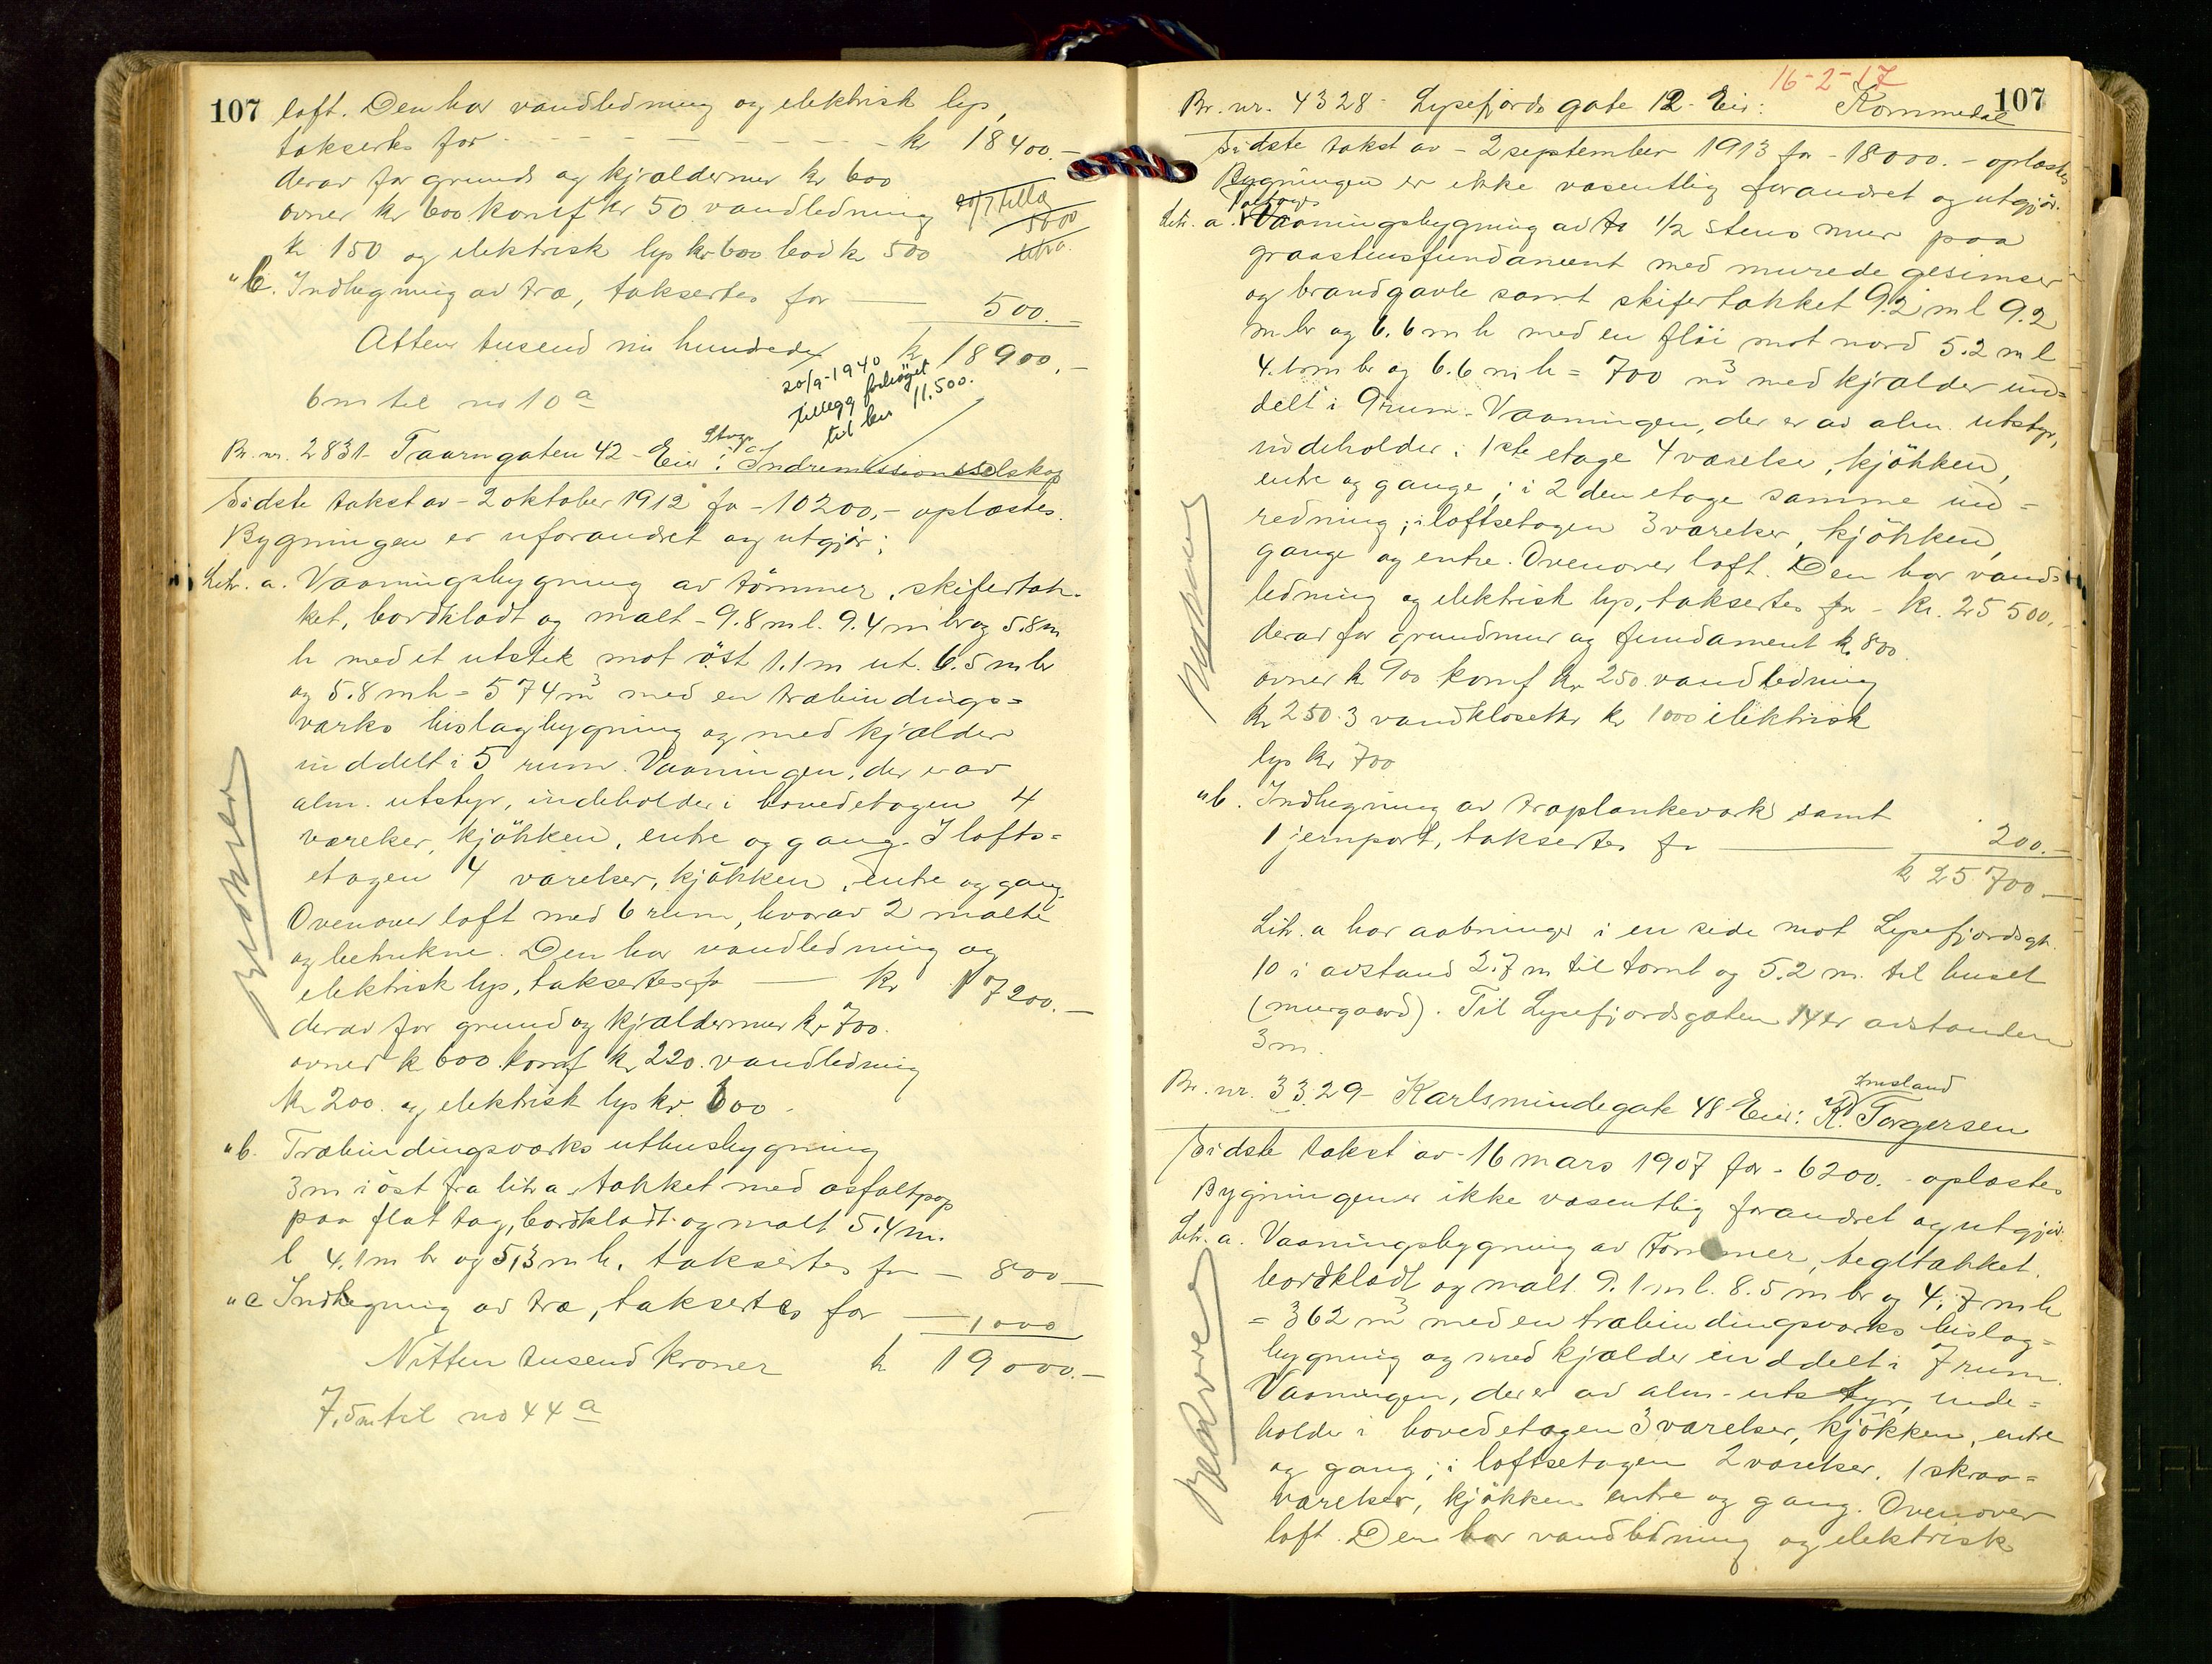 107
loft. Den har vandledning og elektrisk lys,
takseres for - - - - - - - - kr 18400.-
derav for grund og kjældermur kr 600
ovner kr 600 komf kr 50 vandledning
kr 150 og elektrisk lys kr 600 bod kr 500
tillæg
5000
"b. Indhegning av træ, takseres for — 500.-
Atten tusend ni hundrede kr 18900.-
20/9-1940
tillegg forhøget
til kr 11.500.
6m til no 10 a
Br. nr. 2831 - Taarngaten 42 - Eier: Indremissionsselskap
Sidste takst av - 2 oktober 1912 for - 10200,- oplæstes.
Bygningen er uforandret og utgjør:
Litr. a. Vaaningsbygning av tömmer, skifertæk-
ket, bordklædt og malt - 9.8 m l. 9.4 m br og 5.8 m
h med et utstik mot öst 1.1 m ut. 6.5 m br
og 5.8 m h = 574 m3 med en træbindings=
verks bislagbygning og med kjælder
inddelt i 5 rum. Vaaningen, der er av
alm. utstyr, indeholder i hovedetagen 4
værelser, kjökken, entre og gang. I lofts=
etagen 4 værelser, kjökken, entre og gang.
Ovenover loft med 6 rum, hvorav 2 malte
og betrukne. Den har vandledning og
elektrisk lys, takseres for — kr 17200.-
derav for grund og kjældermur kr 700.
ovner kr 600 komf kr 220. vandledning
kr 200. og elektrisk lys kr. 600.-
"b. Træbindingsverks uthusbygning
3 m i öst fra litr a, tækket med asfaltpap
paa flat tag, bordklædt og malt 5.4 m.
l 4.1 m br og 5,3 m h. takseres for — 800.-
"c Indhegning av træ, takseres for — 1000
Nitten tusend kroner kr 19000.-
7.5m til no 44 a
16-2-17
107
Br. nr. 4328 - Lysefjords gate 12 - Eier: Kommedal
Sidste takst av - 2 september 1913 for - 18000.- oplæstes
Bygningen er ikke væsentlig forandret og utgjør:
Litr. a. Vaaningsbygning av 1/2 stens mur paa
graastensfundament med murede gesimser
og brandgavle samt skifertækket 9.2 m l 9.2
m br og 6.6 m h med en flöi mot nord 5.2 m l
4. m br og 6.6 m h = 700 m3 med kjælder ind=
delt i 9 rum. Vaaningen, der er av alm. utstyr,
indeholder i 1ste etage 4 værelser, kjökken,
entre og gange; i 2den etage samme ind=
redning; i loftsetagen 3 værelser, kjökken,
gange og entre. Ovenover loft. Den har vand=
ledning og elektrisk lys, takseres for - kr. 25500.-
derav for grundmur og fundament kr. 800
ovner kr 900 komf kr 250 vandledning
kr 250. 3 vandklosetter kr 1000 elektrisk
lys kr 700
"b. Indhegning av træplankeverk samt
1 jernport, takseres for — 200.-
kr 25700.-
Litr. a har aabninger i en side mot Lysefjordsgt.
10 i avstand 2.7 m til tomt og 5.2 m. til huset
(murgaard). Til Lysefjordsgaten 14 er avstanden
3m.
Br. nr. 3329 - Karlsmindegate 48 Eier: K. Torgersen
Imsland
Sidste takst av - 16 mars 1907 for - 6200.- oplæstes
Bygningen er ikke væsentlig forandret og utgjør:
Litr. a. Vaaningsbygning av tömmer, tegltækket,
bordklædt og malt. 9.1 m l. 8.5 m br og 4.7 m h
= 362 m3 med en træbindingsverks bislag=
bygning og med kjælder inddelt i 7 rum.
Vaaningen, der er av alm. utstyr, inde=
holder i hovedetagen 3 værelser, kjökken, entre
og gang; i loftsetagen 2 værelser, 1 skraa=
værelser, kjökken entre og gang. Ovenover
loft. Den har vandledning og elektrisk